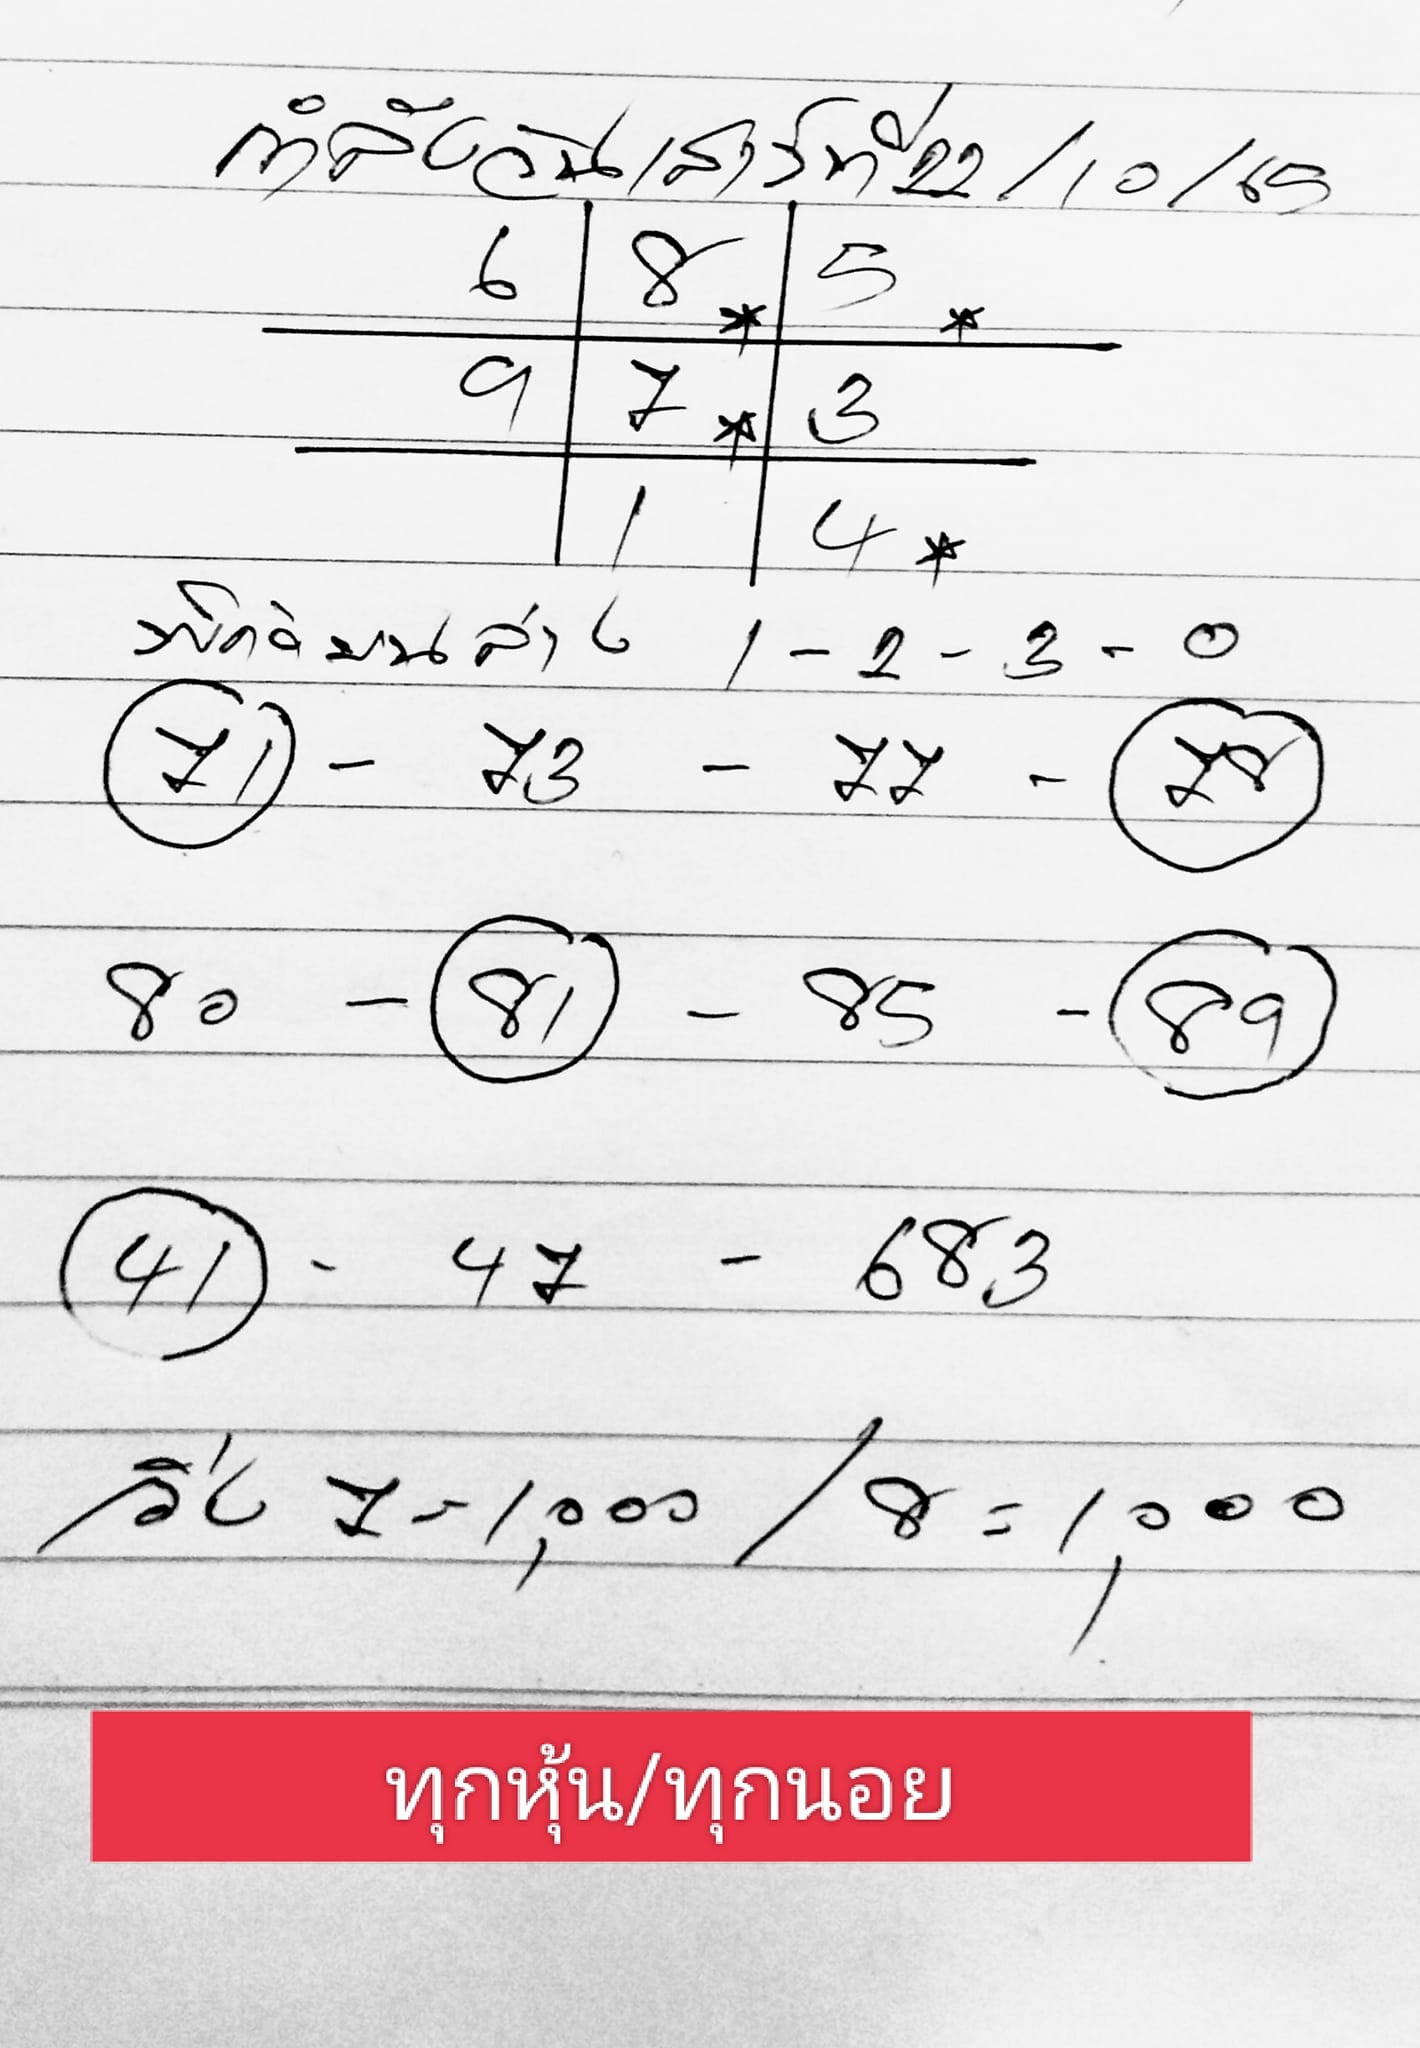 กำลังวันเสาร์ที่ 22/10/65
6 8* 5*
9 7* 3
1 4*
พิกัดบนล่าง 1-2-3-0
71 - 73 - 77 - 78
80 - 81 - 85 - 89
41 - 47 - 683
วิ่ง 7=1,000 / 8=1,000
ทุกหุ้น/ทุกนอย